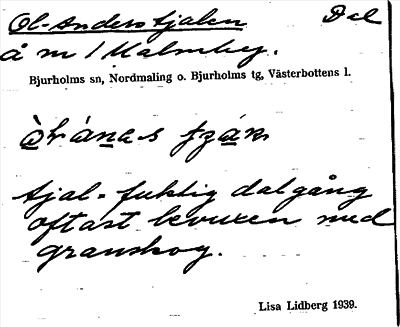 Ol-Anderstjalen Del
å m / Malmberg.
Bjurholms sn, Nordmaling o. Bjurholms tg, Västerbottens l.
tjal = fuktig dalgång
oftast bevuxen med
granskog.
Lisa Lidberg 1939.